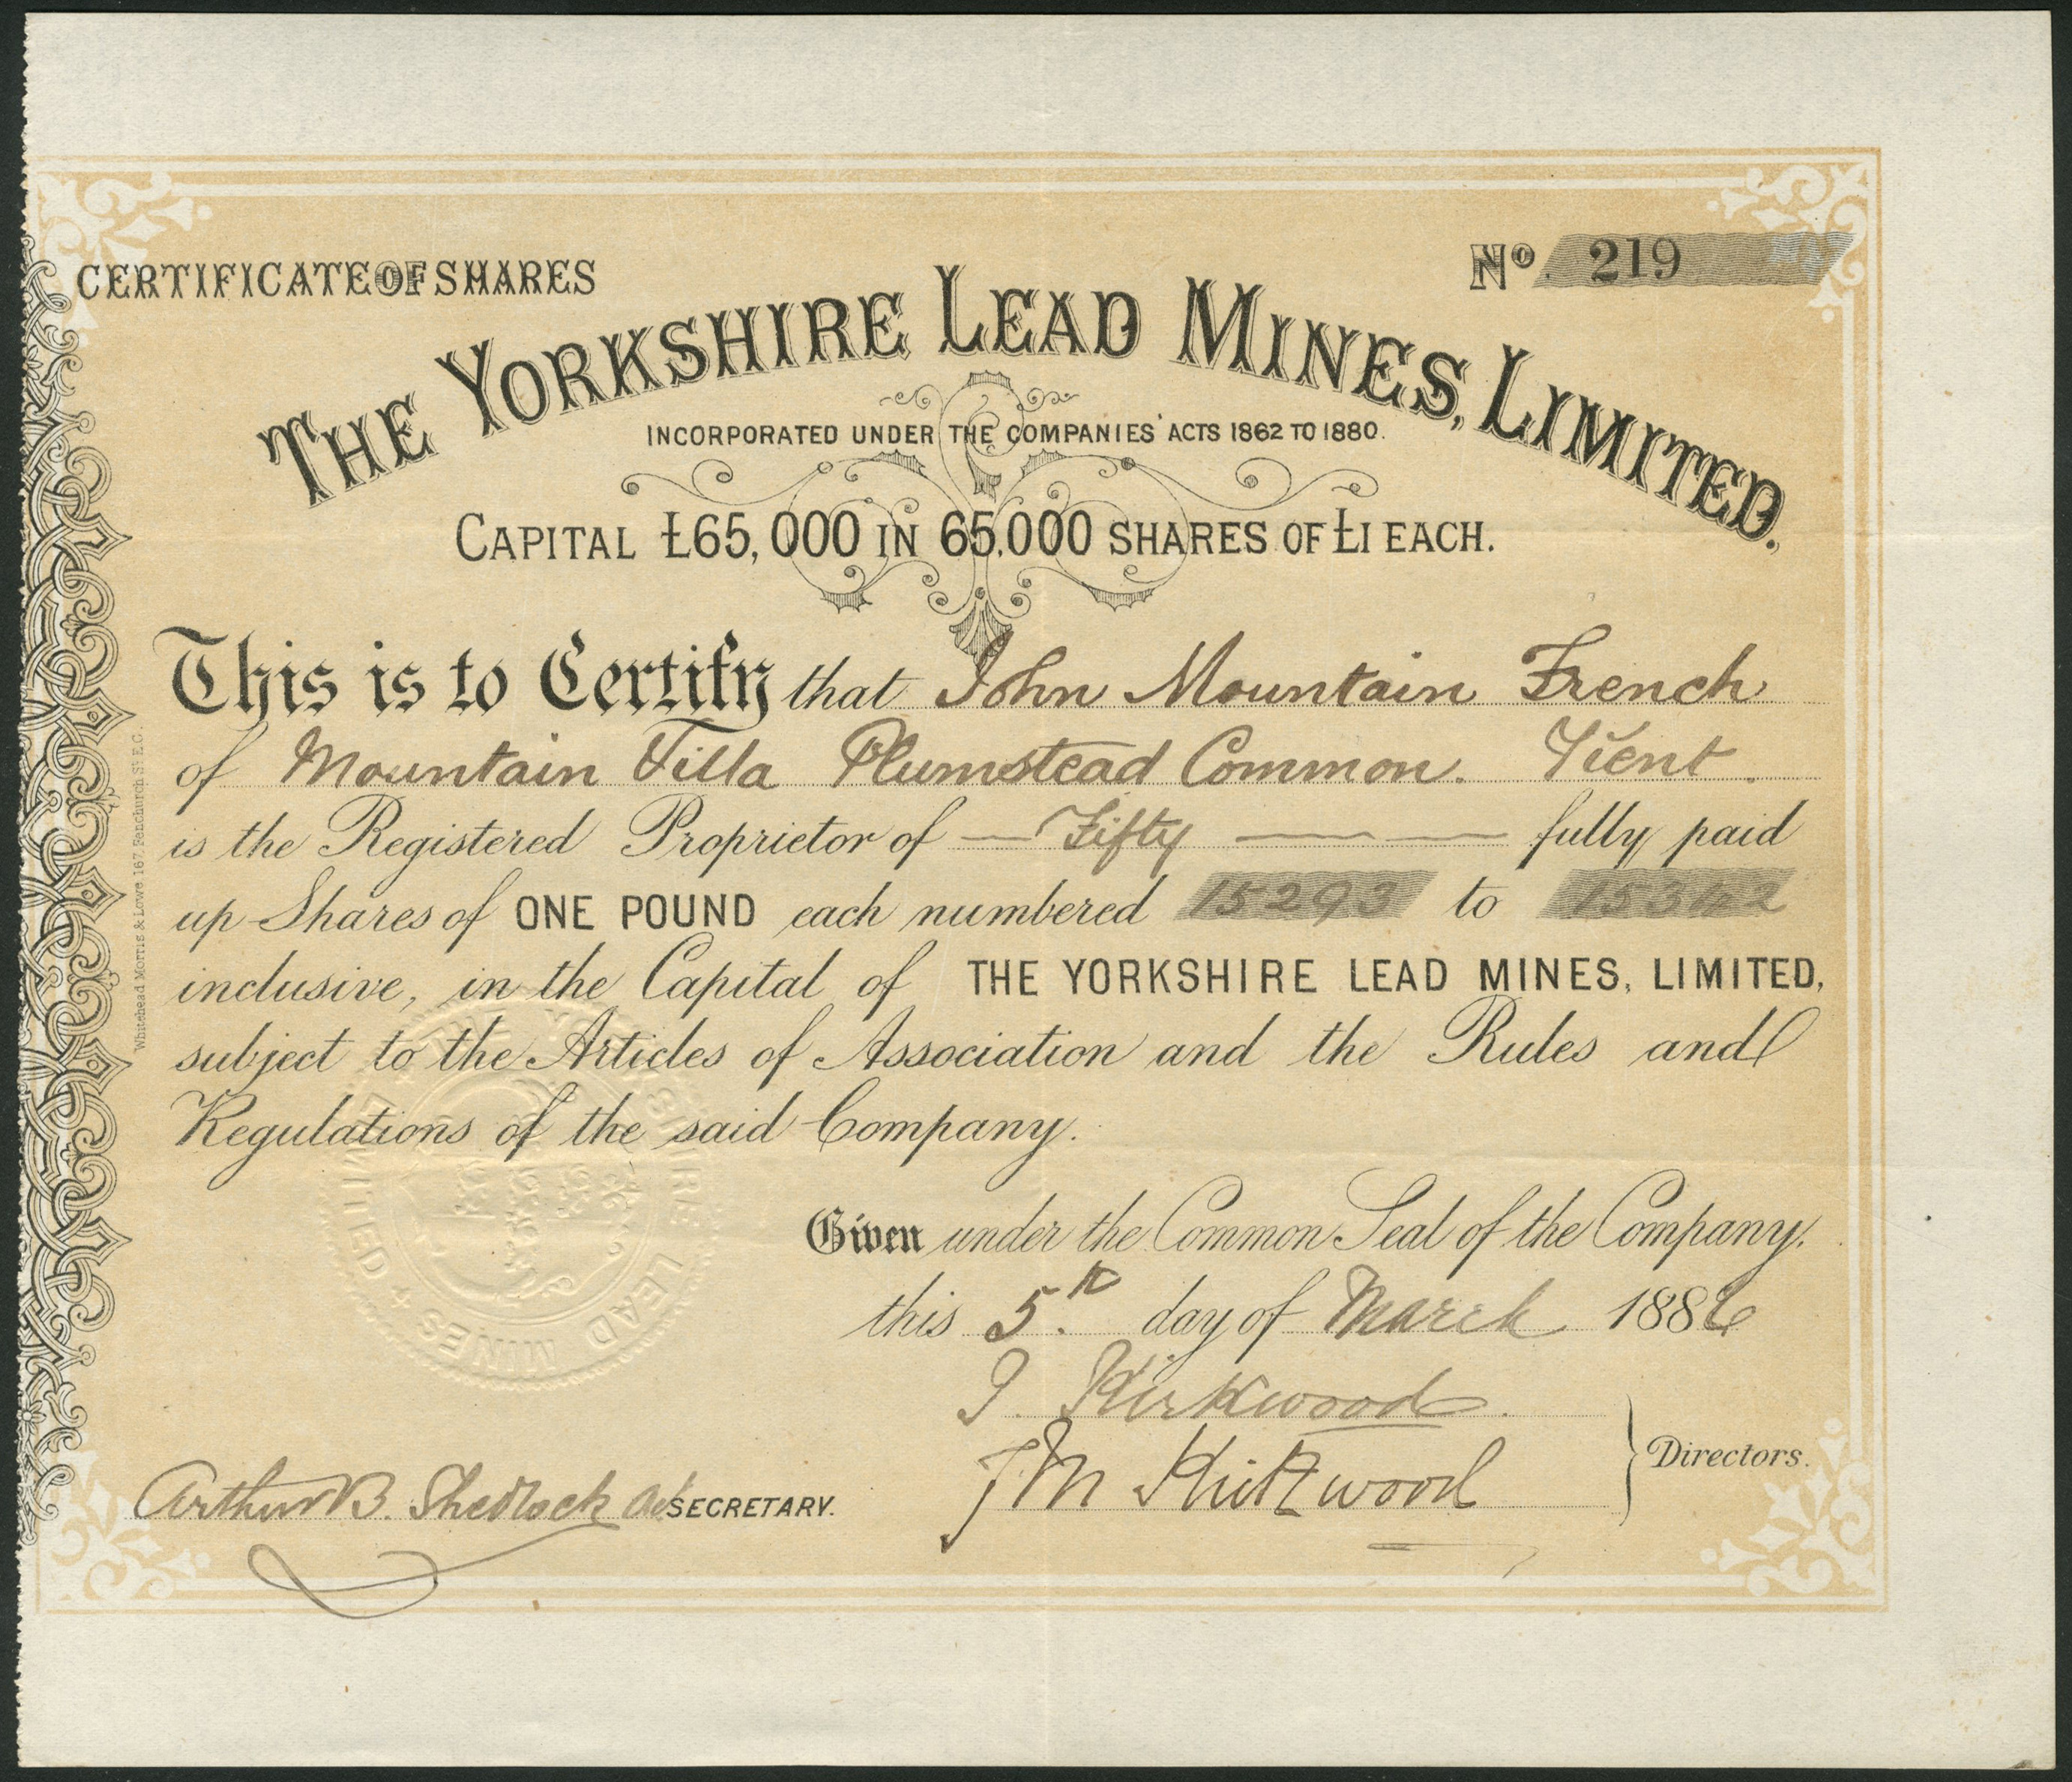 CERTIFICATE OF SHARES
No. 219
THE YORKSHIRE LEAD MINES, LIMITED.
INCORPORATED UNDER THE COMPANIES' ACTS 1862 TO 1880.
CAPITAL £65,000 IN 65,000 SHARES OF £1 EACH.
This is to Certify that John Mountain French
of Mountain Villa Plumstead Common. Kent.
is the Registered Proprietor of — Fifty — fully paid
up Shares of ONE POUND each numbered 15293 to 15342
inclusive, in the Capital of THE YORKSHIRE LEAD MINES, LIMITED,
subject to the Articles of Association and the Rules and
Regulations of the said Company.
Given under the Common Seal of the Company.
this 5th day of March 1886
J. Kirkwood
J M Kirkwood
Directors.
Arthur B. Shedlock SECRETARY.
Whitehead Morris & Lowe, 167 Fenchurch St. E.C.
THE YORKSHIRE LEAD MINES LIMITED